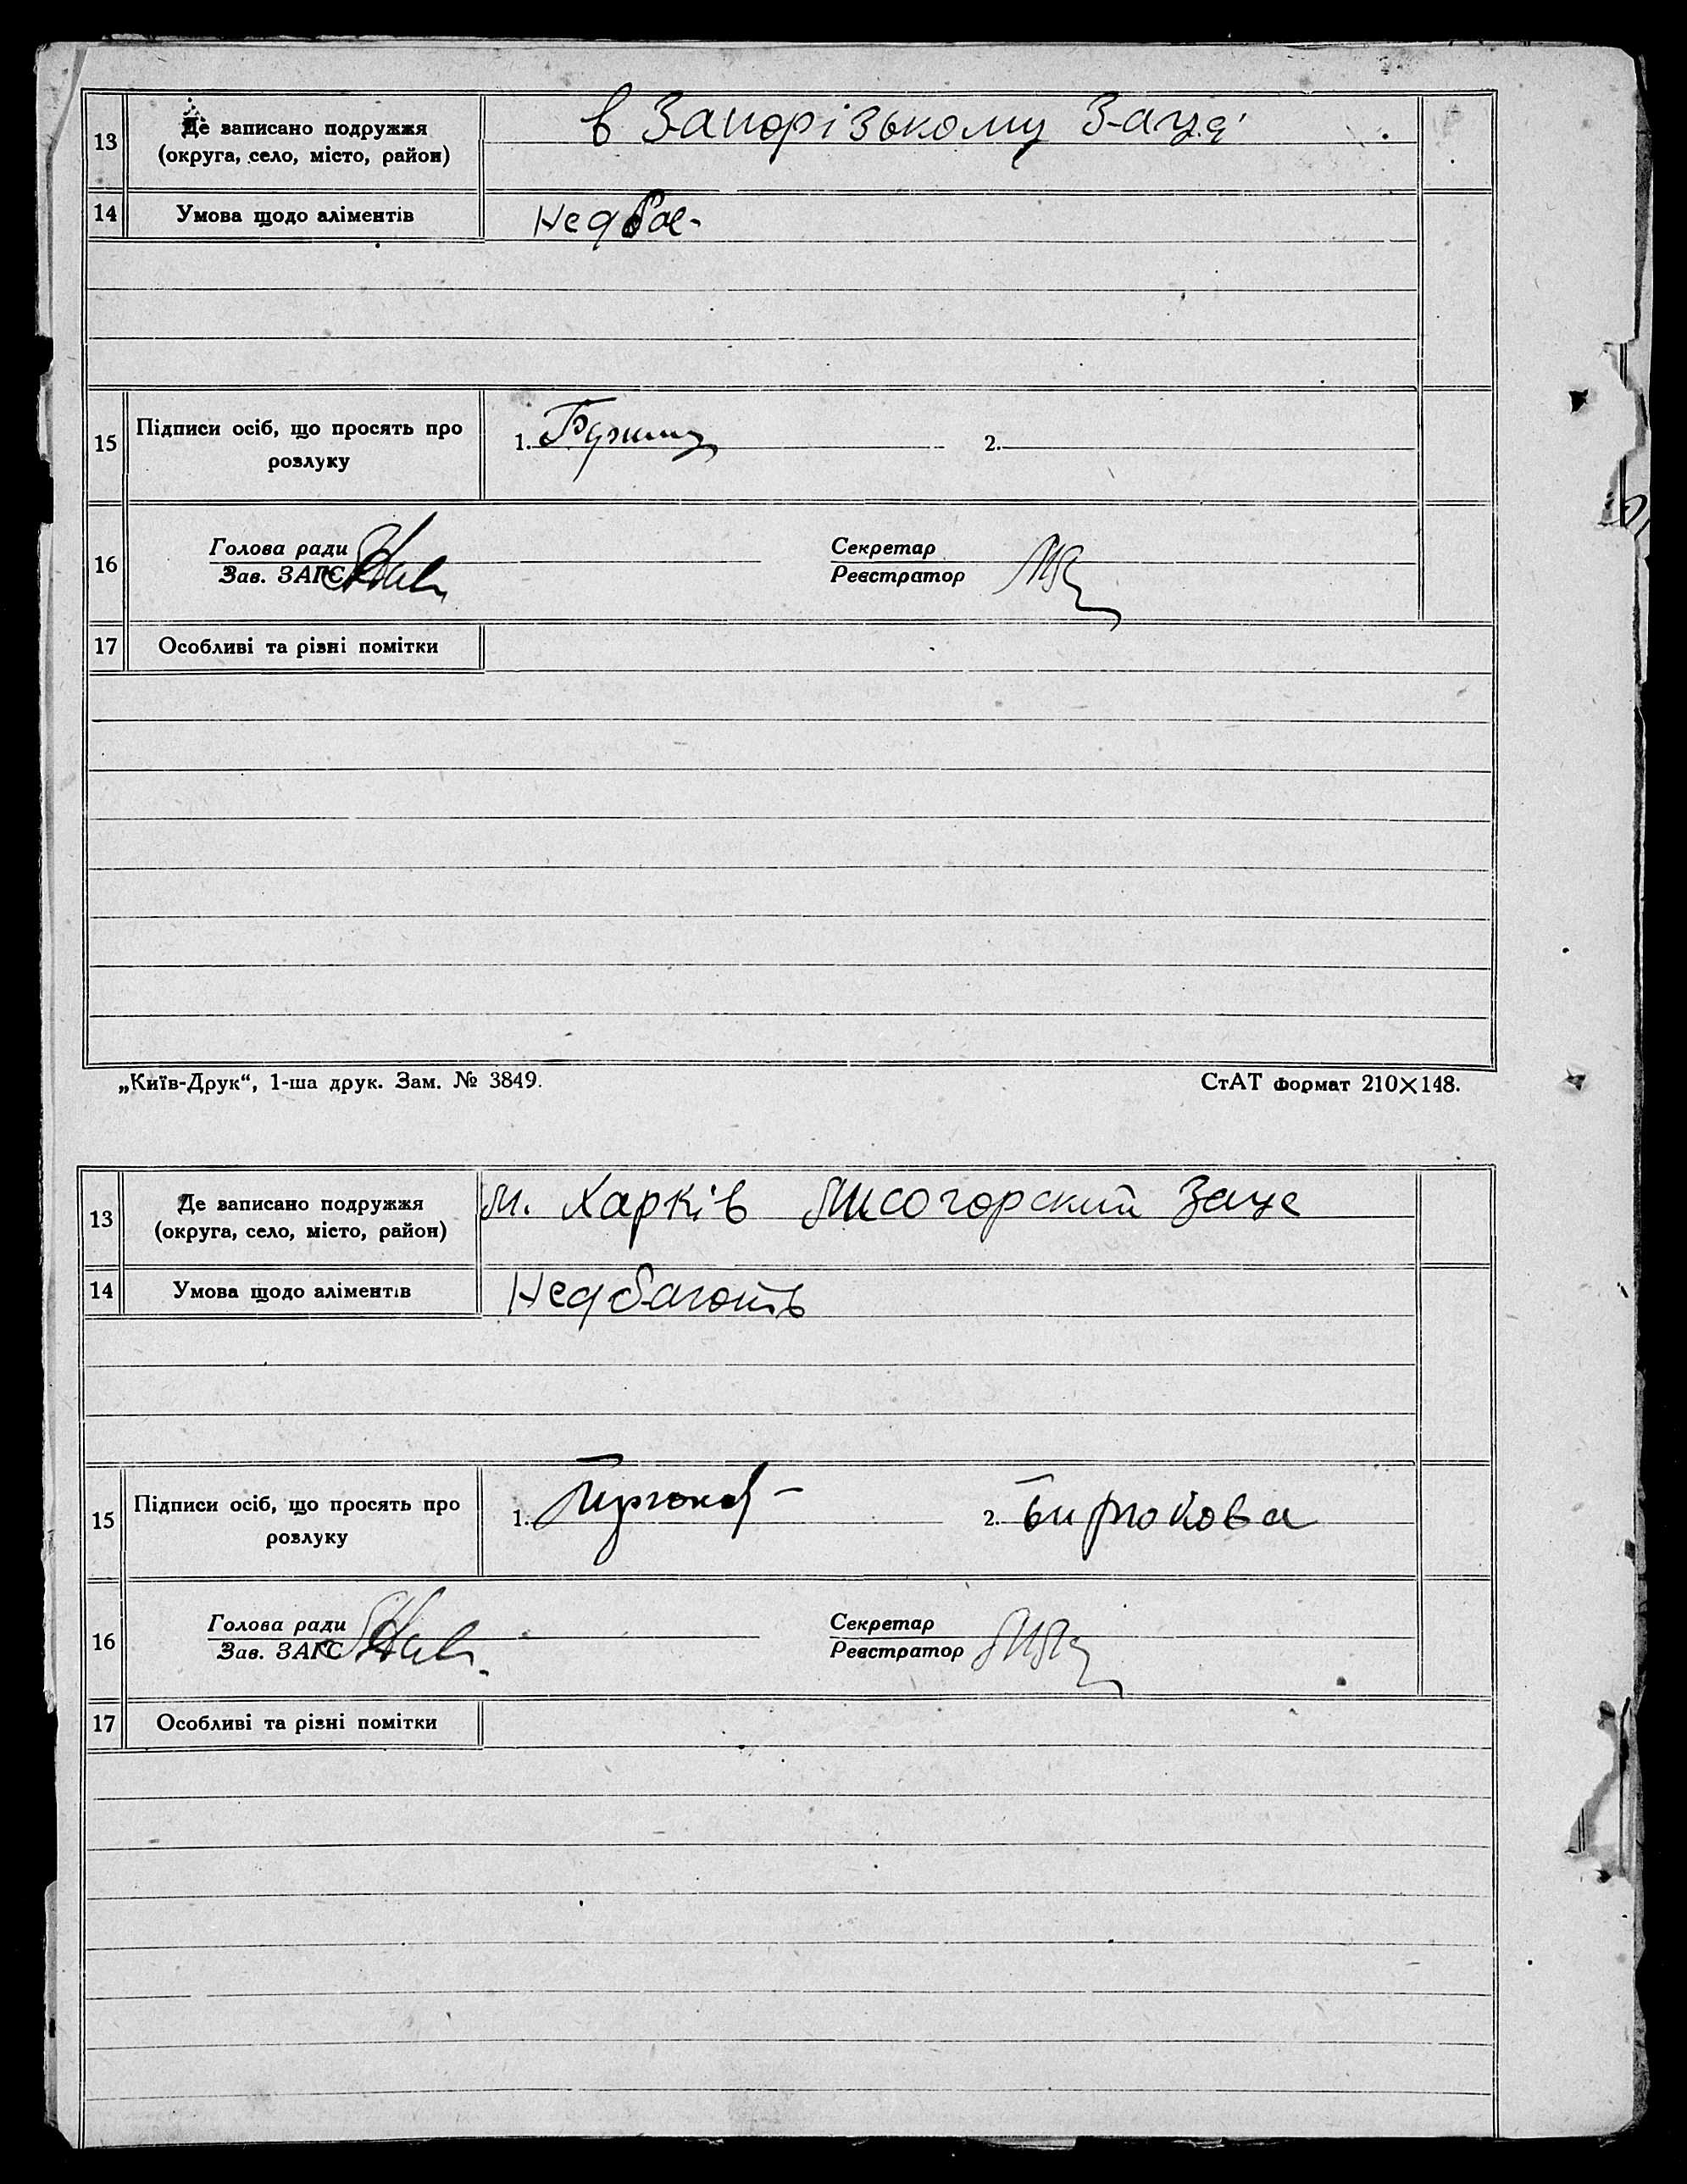 13 Де записано подружжя (округа, село, місто, район) в Запорізькому Загсі
14 Умова щодо аліментів Недбає-
15 Підписи осіб, що просять про розлуку 1. 2.
16 Голова ради Секретар
Зав. ЗАГС Реєстратор
17 Особливі та різні помітки
„Київ-Друк“, 1-ша друк. Зам. № 3849. СтАТ формат 210×148.
13 Де записано подружжя (округа, село, місто, район) м. Харків Лисогорский Загс
14 Умова щодо аліментів Недбають
15 Підписи осіб, що просять про розлуку 1. 2. Бирюкова
16 Голова ради Секретар
Зав. ЗАГС Реєстратор
17 Особливі та різні помітки